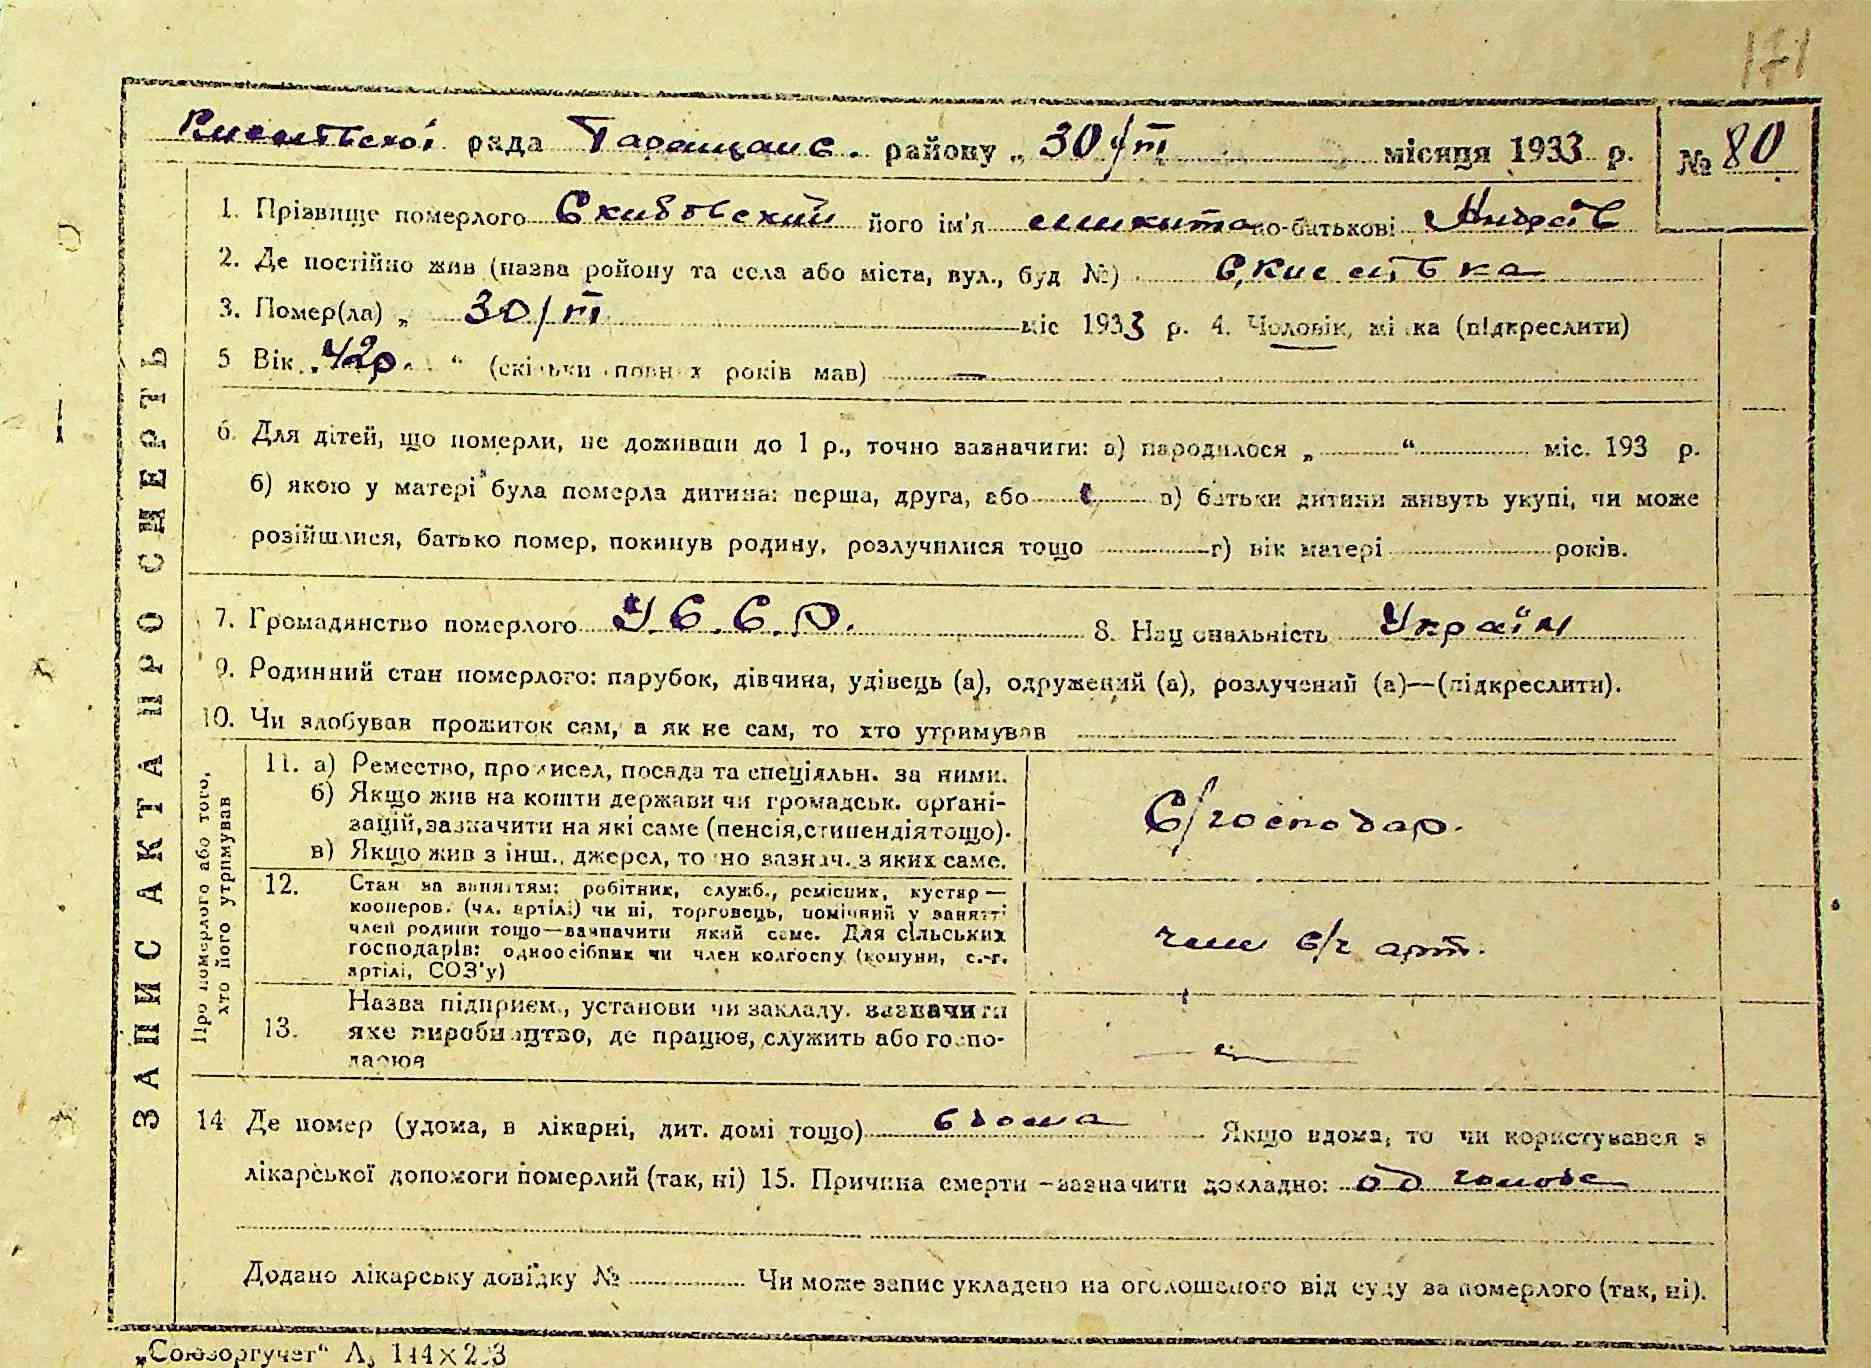 171
рада Таращанс. району „ 30/III місяця 1933 р. № 80
1. Прізвище померлого Скибовский його ім'я Микита по-батькові Андріїв
2. Де постійно жив (назва ройону та села або міста, вул., буд №)
3. Помер(ла) „ 30/III міс 1933 р. 4. Чоловік, жінка (підкреслити)
5 Вік „ 42р. “ (скільки повних років мав) —
6. Для дітей, що померли, не доживши до 1 р., точно зазначити: а) народилося „ “ міс. 193 р.
б) якою у матері була померла дитина: перша, друга, або в) батьки дитини живуть укупі, чи може
розійшлися, батько помер, покинув родину, розлучилися тощо г) вік матері років.
7. Громадянство померлого У.С.С.Р. 8. Національність Україн
9. Родинний стан померлого: парубок, дівчина, удівець (а), одружений (а), розлучений (а)—(підкреслити).
10. Чи здобував прожиток сам, а як не сам, то хто утримував
ЗАПИС АКТА ПРО СМЕРТЬ
Про померлого або того,
хто його утримував
11. а) Ремество, промисел, посада та спеціяльн. за ними.
б) Якщо жив на кошти держави чи громадськ. органі-
зацій, зазначити на які саме (пенсія, стипендія тощо).
в) Якщо жив з інш., джерел, точно зазнач. з яких саме.
С/господар.
12. Стан за заняттям: робітник, служб., ремісник, кустар —
кооперов. (чл. артілі) чи ні, торговець, помічний у занятті
член родини тощо—зазначити який саме. Для сільських
господарів: одноосібник чи член колгоспу (комуни, с.-г.
артілі, СОЗ'у)
член с/г арт.
13. Назва підприєм., установи чи закладу. зазначити
яке виробництво, де працює, служить або госпо-
дарює
14 Де помер (удома, в лікарні, дит. домі тощо) вдома Якщо вдома, то чи користувався з
лікарської допомоги померлий (так, ні) 15. Причина смерти —зазначити докладно: од
Додано лікарську довідку № Чи може запис укладено на оголошеного від суду за померлого (так, ні).
„Союзоргучет“